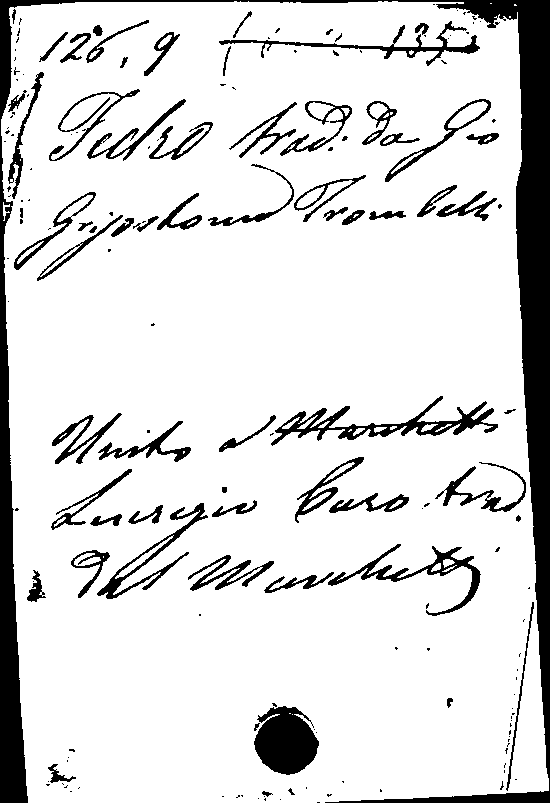 126, 9 135
Fedro trad: da Gio
Grisostomo Trombelli
Unito a Marchetti
Lucrezio Caro trad.
dal Marchetti